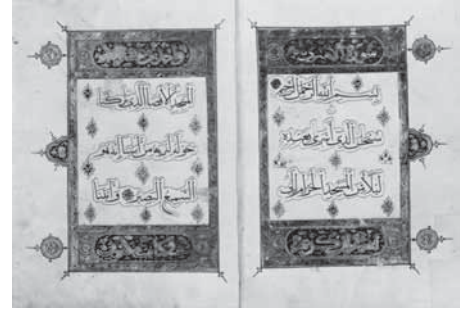 بسم الله الرحمن الرحيم
سبحن الذي اسرى بعبده
ليلا من المسجد الحرام الى
المسجد الاقصا الذي بركنا
حوله لنريه من ايتنا انه هو
السميع البصير واتينا